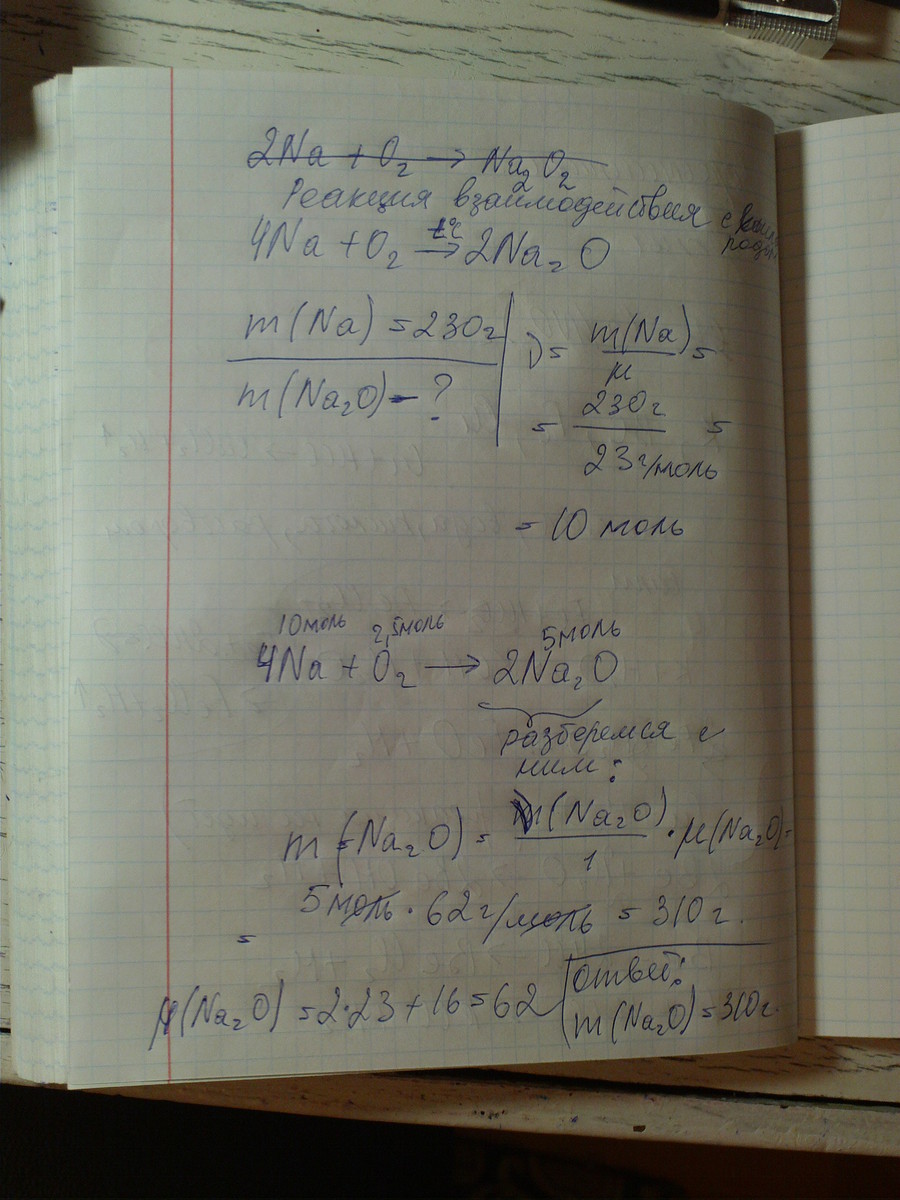 2Na + O₂ → Na₂O₂
Реакция взаимодействия с кислородом
4Na + O₂ →t° 2Na₂O
m(Na) = 230г
m(Na₂O) - ?
ν = m(Na)/μ =
= 230г/23г/моль =
= 10 моль
10моль 2,5моль 5моль
4Na + O₂ → 2Na₂O
разберемся с
ним:
m(Na₂O) = ν(Na₂O)/1 · μ(Na₂O) =
= 5моль · 62г/моль = 310г.
μ(Na₂O) = 2·23 + 16 = 62
ответ:
m(Na₂O) = 310г.